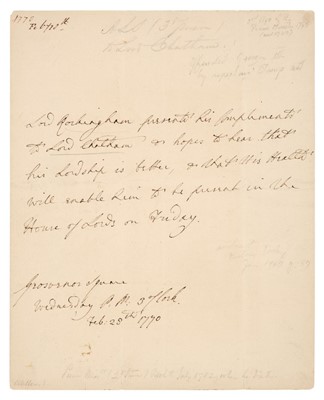 1770
Feb 28th
A L S (3d person
to Lord Chatham.
Lord Rockingham presents his Compliments
to Lord Chatham & hopes to hear that
his Lordship is better, & that His Health
will enable him to be present in the
House of Lords on Friday.
Grosvenor Square
Wednesday P. M. 3 o'Clock.
Feb: 28th 1770